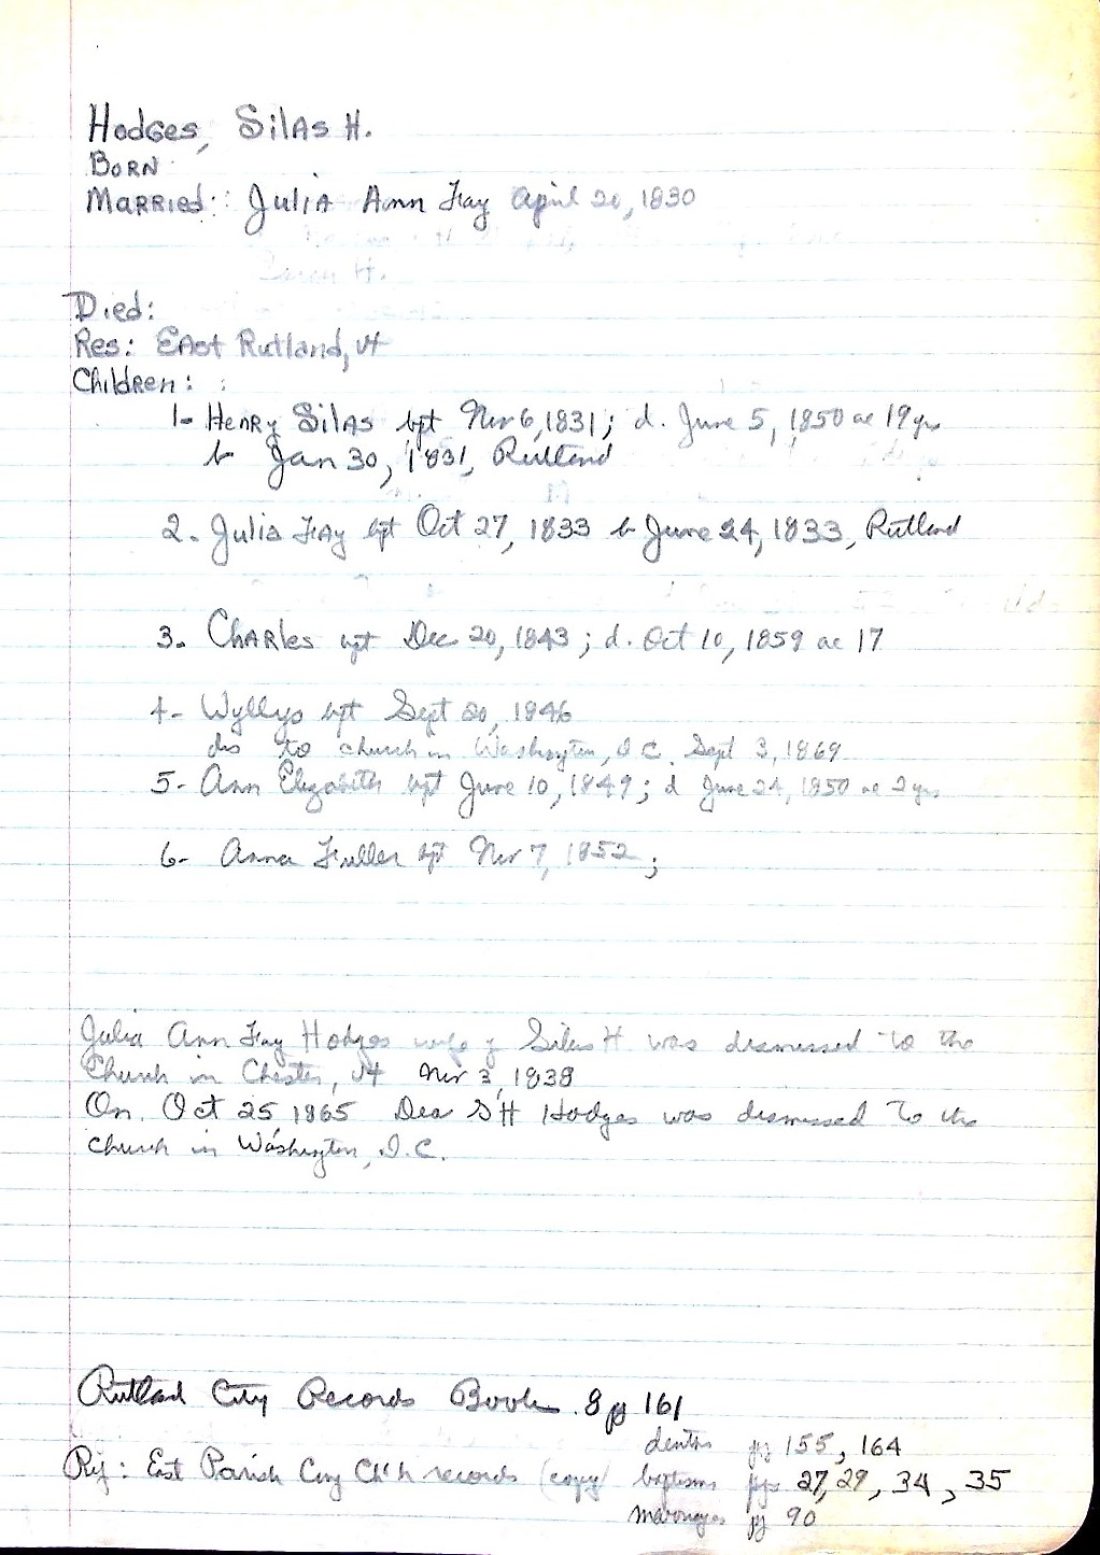 Hodges, Silas H.
Born
Married: Julia Ann Fay April 20, 1830
Died:
Res: East Rutland, Vt
Children:
1- Henry Silas bpt Nov 6, 1831; d. June 5, 1850 ae 19 yrs
b Jan 30, 1831, Rutland
2. Julia Fay bpt Oct 27, 1833 b June 24, 1833, Rutland
3. Charles bpt Dec 20, 1843; d. Oct 10, 1859 ae 17
4- Wyllys bpt Sept 20, 1846
dis to church in Washington, D.C. Sept 3, 1869
5- Ann Elizabeth bpt June 10, 1849; d June 24, 1850 ae 2 yrs
6- Anna Fuller bpt Nov 7, 1852;
Julia Ann Fay Hodges wife of Silas H was dismissed to the
Church in Chester, Vt Nov 3, 1838
On Oct 25, 1865 Dea S H Hodges was dismissed to the
church in Washington, D.C.
Rutland City Records Book 8 pg 161
deaths pg 155, 164
Ref: East Parish Cong Ch'h records (copy) baptisms pgs 27, 29, 34, 35
marriages pg 90